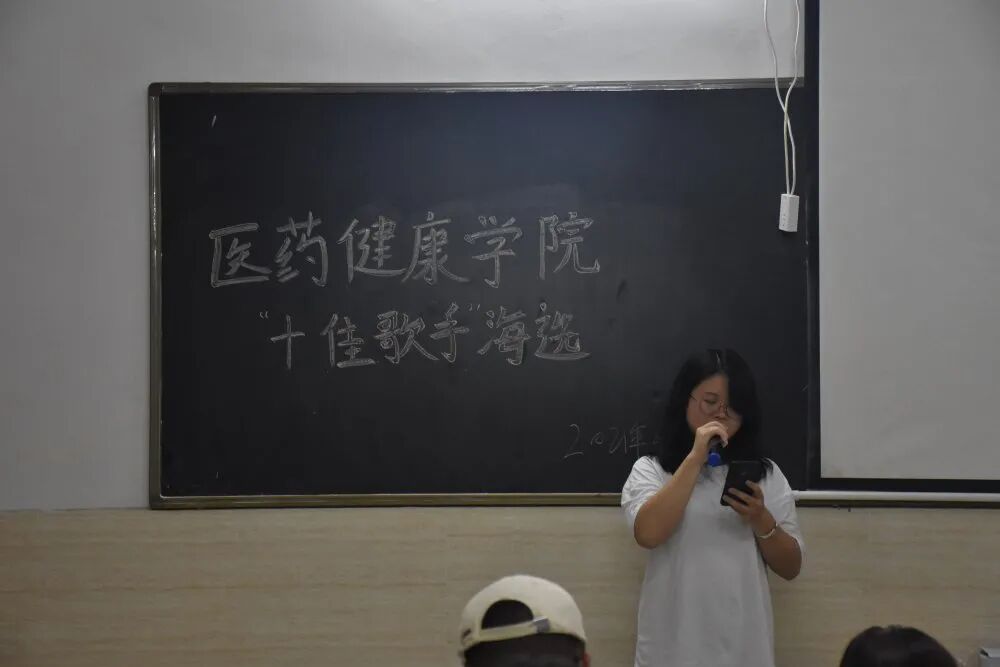 医药健康学院
“十佳歌手”海选
2021年